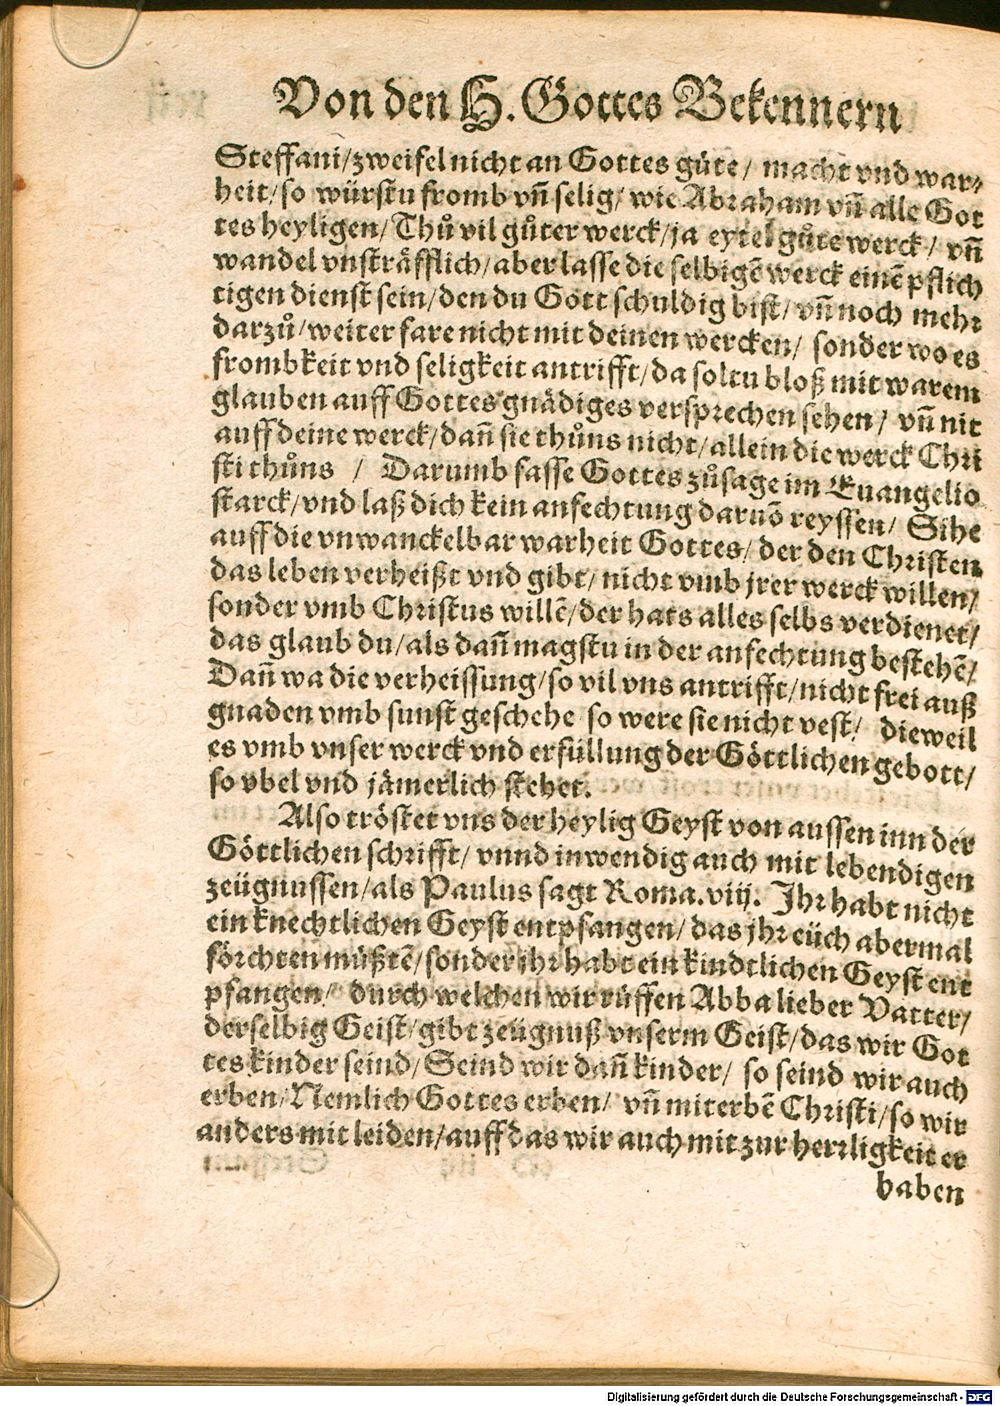 Von den H. Gottes Bekennern
Steffani/ zweifel nicht an Gottes güte/ macht vnd war/
heit/ so würstu fromb vñ selig/ wie Abraham vñ alle Got
tes heyligen/ Thů vil gůter werck/ ja eytel gůte werck/ vñ
wandel vnsträfflich/ aber lasse die selbigẽ werck einẽ pflich
tigen dienst sein/ den du Gott schuldig bist/ vñ noch mehr
darzů/ weiter fare nicht mit deinen wercken/ sonder wo es
frombkeit vnd seligkeit antrifft/ da soltu bloß mit warem
glauben auff Gottes gnädiges versprechen sehen/ vñ nit
auff deine werck/ dañ sie thůns nicht/ allein die werck Chri
sti thůns / Darumb fasse Gottes zůsage im Euangelio
starck/ vnd laß dich kein anfechtung daruõ reyssen/ Sihe
auff die vnwanckelbar warheit Gottes/ der den Christen
das leben verheißt vnd gibt/ nicht vmb jrer werck willen/
sonder vmb Christus willẽ/ der hats alles selbs verdienet/
das glaub du/ als dañ magstu in der anfechtung bestehẽ/
Dañ wa die verheissung/ so vil vns antrifft/ nicht frei auß
gnaden vmb sunst geschehe so were sie nicht vest/ dieweil
es vmb vnser werck vnd erfüllung der Göttlichen gebott/
so vbel vnd jämerlich stehet.
Also tröstet vns der heylig Geyst von aussen inn der
Göttlichen schrifft/ vnnd inwendig auch mit lebendigen
zeügnussen/ als Paulus sagt Roma. viij. Jhr habt nicht
ein knechtlichen Geyst entpfangen/ das jhr eüch abermal
förchten müßtẽ/ sonder jhr habt ein kindtlichen Geyst ent
pfangen/ durch welchen wir rüffen Abba lieber Vatter/
derselbig Geist/ gibt zeügnuß vnserm Geist/ das wir Got
tes kinder seind/ Seind wir dañ kinder/ so seind wir auch
erben/ Nemlich Gottes erben/ vñ miterbẽ Christi/ so wir
anders mit leiden/ auff das wir auch mit zur herrligkeit er
haben
Digitalisierung gefördert durch die Deutsche Forschungsgemeinschaft - DFG